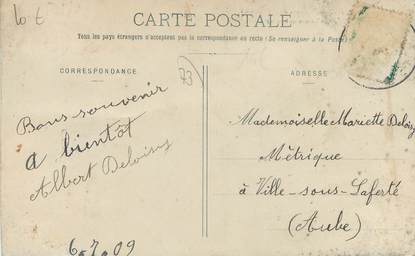 lot
CARTE POSTALE
Tous les pays étrangers n'acceptent pas la correspondance au recto (Se renseigner à la Poste)
CORRESPONDANCE
73
ADRESSE
Bons souvenir
a bientôt
Albert
6.7.09
Mademoiselle Mariette
Métrique
à Ville-sous-Laferté
(Aube)